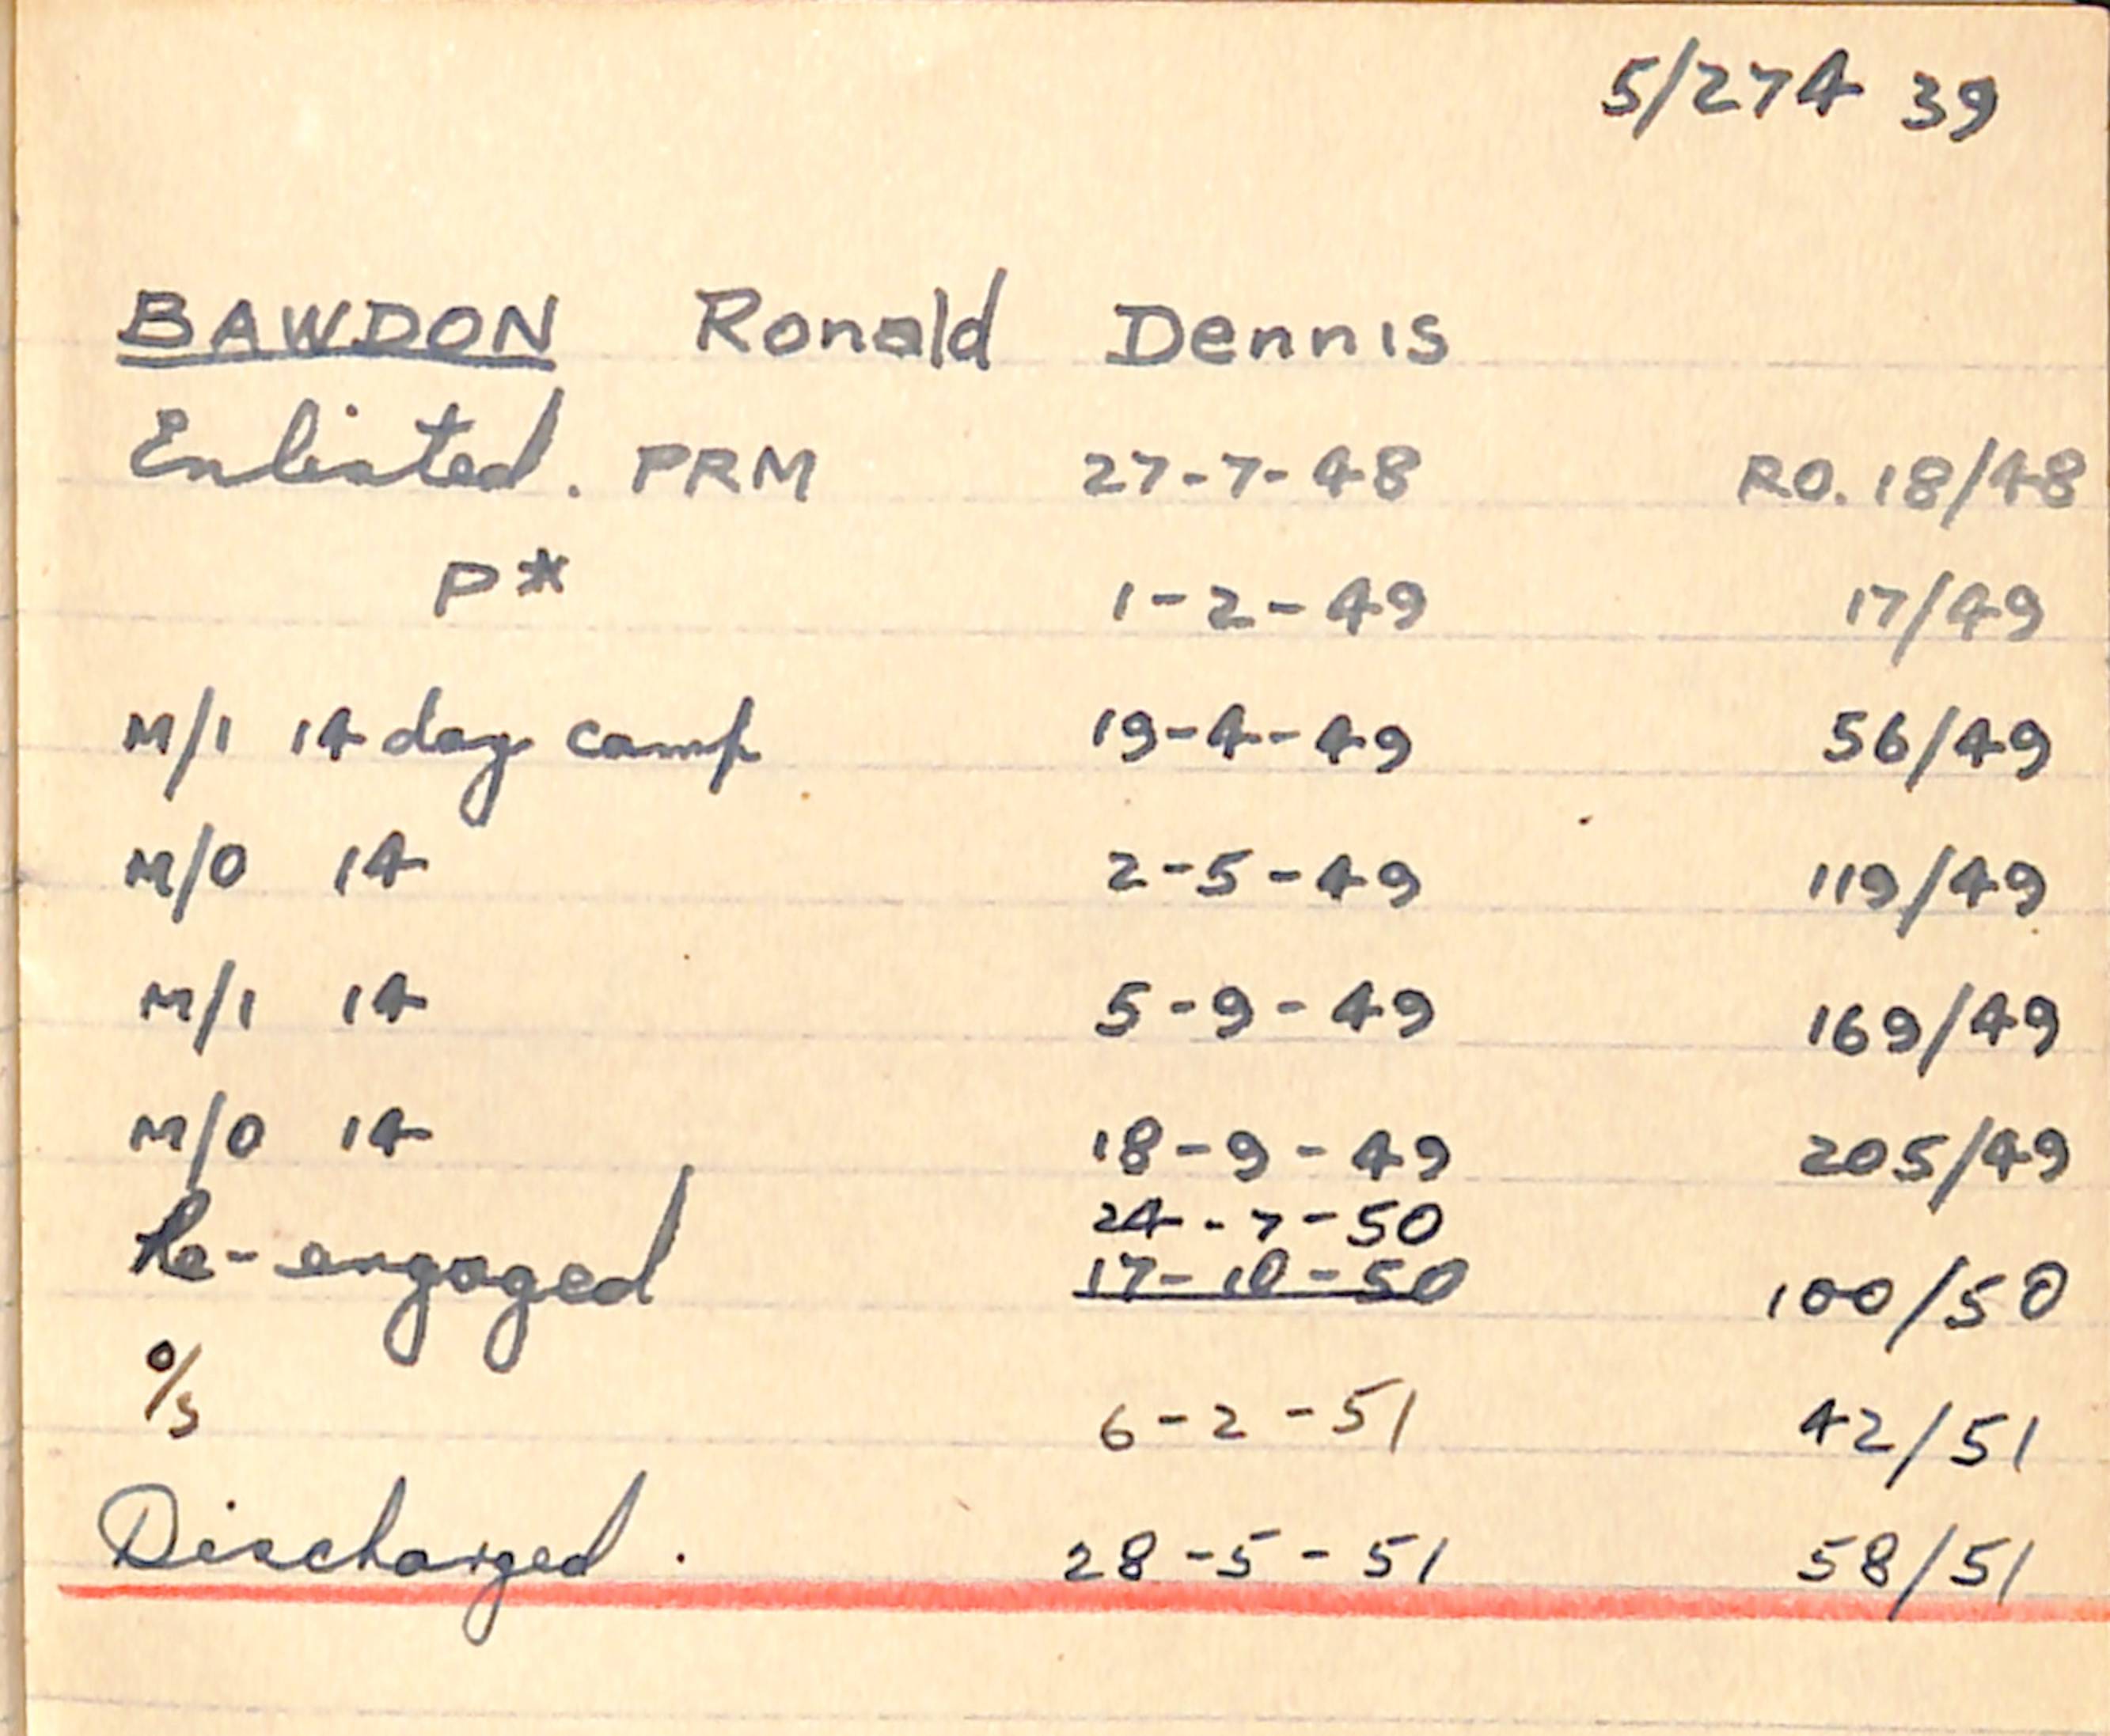 5/274 39
BAWDON Ronald Dennis
Enlisted. PRM 27-7-48 RO. 18/48
P* 1-2-49 17/49
M/1 14 day camp 19-4-49 56/49
M/O 14 2-5-49 119/49
M/1 14 5-9-49 169/49
M/O 14 18-9-49 205/49
24-7-50
Re-engaged 17-10-50 100/50
O/S 6-2-51 42/51
Discharged. 28-5-51 58/51